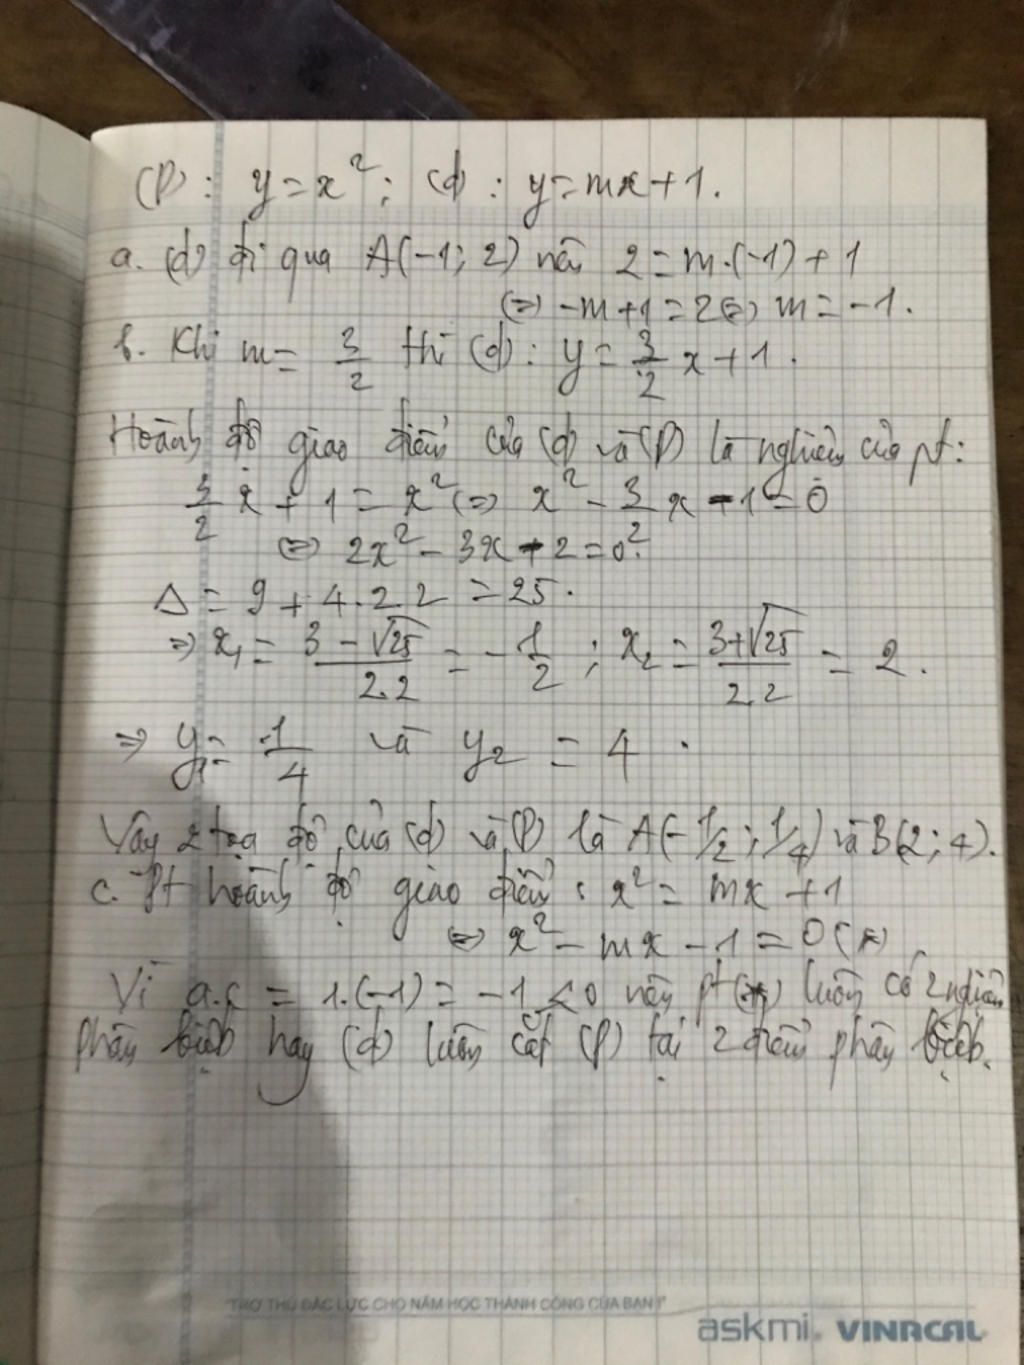 (P): y = x²; (d): y = mx + 1.
a. (d) đi qua A(-1; 2) nên 2 = m.(-1) + 1
(=) -m + 1 = 2 (=) m = -1.
b. Khi m = 3/2 thì (d): y = 3/2 x + 1.
Hoành độ giao điểm của (d) và (P) là nghiệm của pt:
3/2 x + 1 = x² (=) x² - 3/2 x - 1 = 0
(=) 2x² - 3x - 2 = 0.
Δ = 9 + 4.2.2 = 25.
=> x₁ = (3 - √25)/(2.2) = -1/2; x₂ = (3 + √25)/(2.2) = 2.
=> y₁ = 1/4 và y₂ = 4.
Vậy 2 tọa độ của (d) và (P) là A(-1/2; 1/4) và B(2; 4).
c. Pt hoành độ giao điểm: x² = mx + 1
(=) x² - mx - 1 = 0 (*)
Vì a.c = 1.(-1) = -1 < 0 nên pt (*) luôn có 2 nghiệm
phân biệt hay (d) luôn cắt (P) tại 2 điểm phân biệt.
"TRỢ THỦ ĐẮC LỰC CHO NĂM HỌC THÀNH CÔNG CỦA BẠN!"
askmi. VINACAL